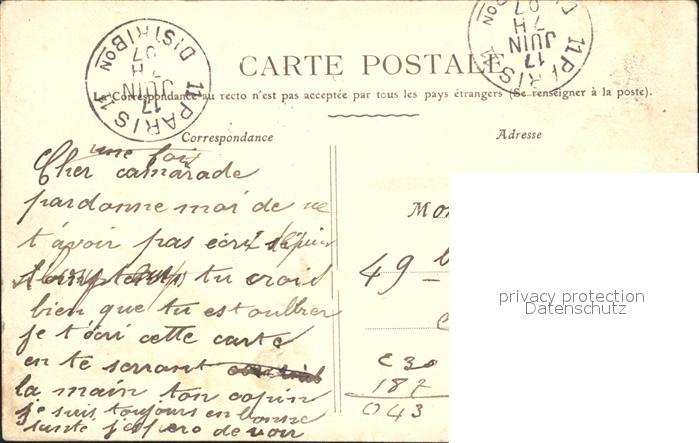 PARIS 11 DISTRIBON
7H
17
JUIN
07
PARIS 11
7H
17
JUIN
07
CARTE POSTALE
La Correspondance au recto n'est pas acceptée par tous les pays étrangers (Se renseigner à la poste).
Correspondance
Adresse
une fois
Cher camarade
pardonne moi de ne
t'avoir pas écri depuis
tu crois
bien que tu est oublier
je t'écri cette carte
en te serrant
la main ton copin
je suis toujours en bonne
sante j'espero de voir
Mo
49
privacy protection
Datenschutz
C30
187
043